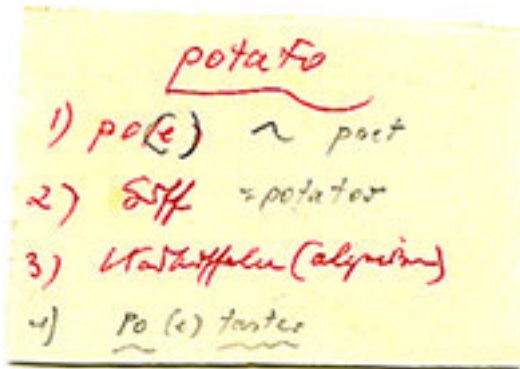 potato
1) po(e) ~ poet
2) Suff = potator
3) Kartoffeln
4) po(e) taster